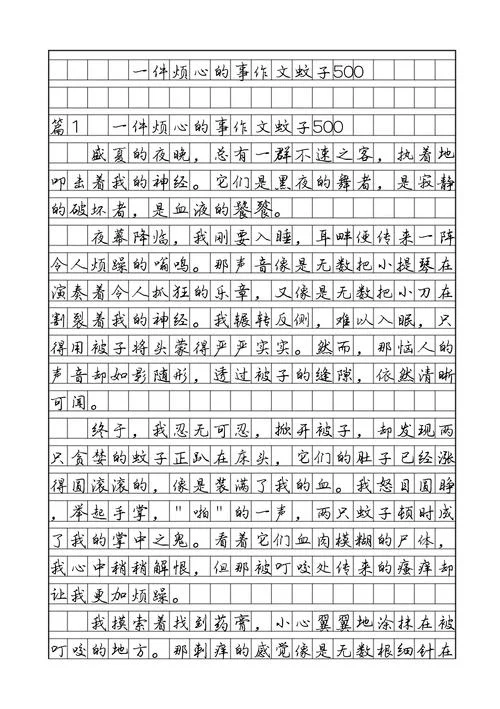 一件烦心的事作文蚊子500
篇1　一件烦心的事作文蚊子500
盛夏的夜晚，总有一群不速之客，执着地
叩击着我的神经。它们是黑夜的舞者，是寂静
的破坏者，是血液的饕餮。
夜幕降临，我刚要入睡，耳畔便传来一阵
令人烦躁的嗡鸣。那声音像是无数把小提琴在
演奏着令人抓狂的乐章，又像是无数把小刀在
割裂着我的神经。我辗转反侧，难以入眠，只
得用被子将头蒙得严严实实。然而，那恼人的
声音却如影随形，透过被子的缝隙，依然清晰
可闻。
终于，我忍无可忍，掀开被子，却发现两
只贪婪的蚊子正趴在床头，它们的肚子已经涨
得圆滚滚的，像是装满了我的血。我怒目圆睁
，举起手掌，"啪"的一声，两只蚊子顿时成
了我的掌中之鬼。看着它们血肉模糊的尸体，
我心中稍稍解恨，但那被叮咬处传来的瘙痒却
让我更加烦躁。
我摸索着找到药膏，小心翼翼地涂抹在被
叮咬的地方。那刺痒的感觉像是无数根细针在